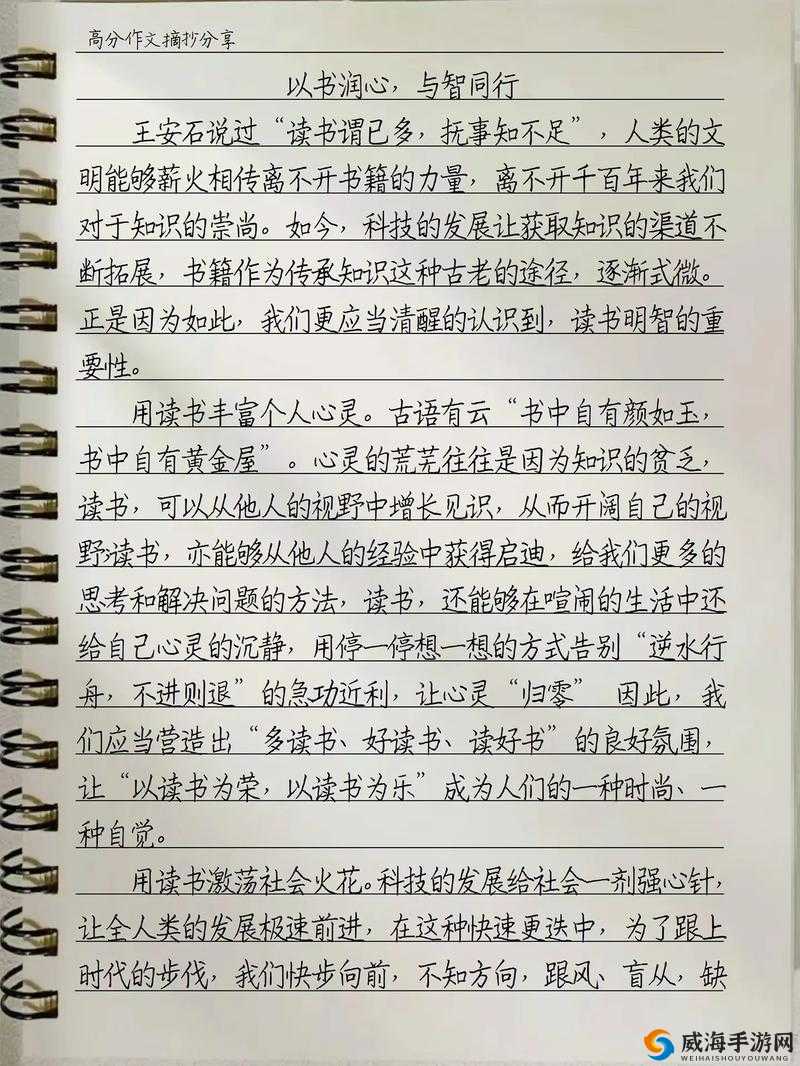 高分作文摘抄分享
以书润心，与智同行
王安石说过“读书谓已多，抚事知不足”，人类的文
明能够薪火相传离不开书籍的力量，离不开千百年来我们
对于知识的崇尚。如今，科技的发展让获取知识的渠道不
断拓展，书籍作为传承知识这种古老的途径，逐渐式微。
正是因为如此，我们更应当清醒的认识到，读书明智的重
要性。
用读书丰富个人心灵。古语有云“书中自有颜如玉，
书中自有黄金屋”。心灵的荒芜往往是因为知识的贫乏，
读书，可以从他人的视野中增长见识，从而开阔自己的视
野;读书，亦能够从他人的经验中获得启迪，给我们更多的
思考和解决问题的方法，读书，还能够在喧闹的生活中还
给自己心灵的沉静，用停一停想一想的方式告别“逆水行
舟，不进则退”的急功近利，让心灵“归零” 因此，我
们应当营造出“多读书、好读书、读好书”的良好氛围，
让“以读书为荣，以读书为乐”成为人们的一种时尚、一
种自觉。
用读书激荡社会火花。科技的发展给社会一剂强心针，
让全人类的发展极速前进，在这种快速更迭中，为了跟上
时代的步伐，我们快步向前，不知方向，跟风、盲从，缺
威海手游网
WEIHAISHOUYOUWANG